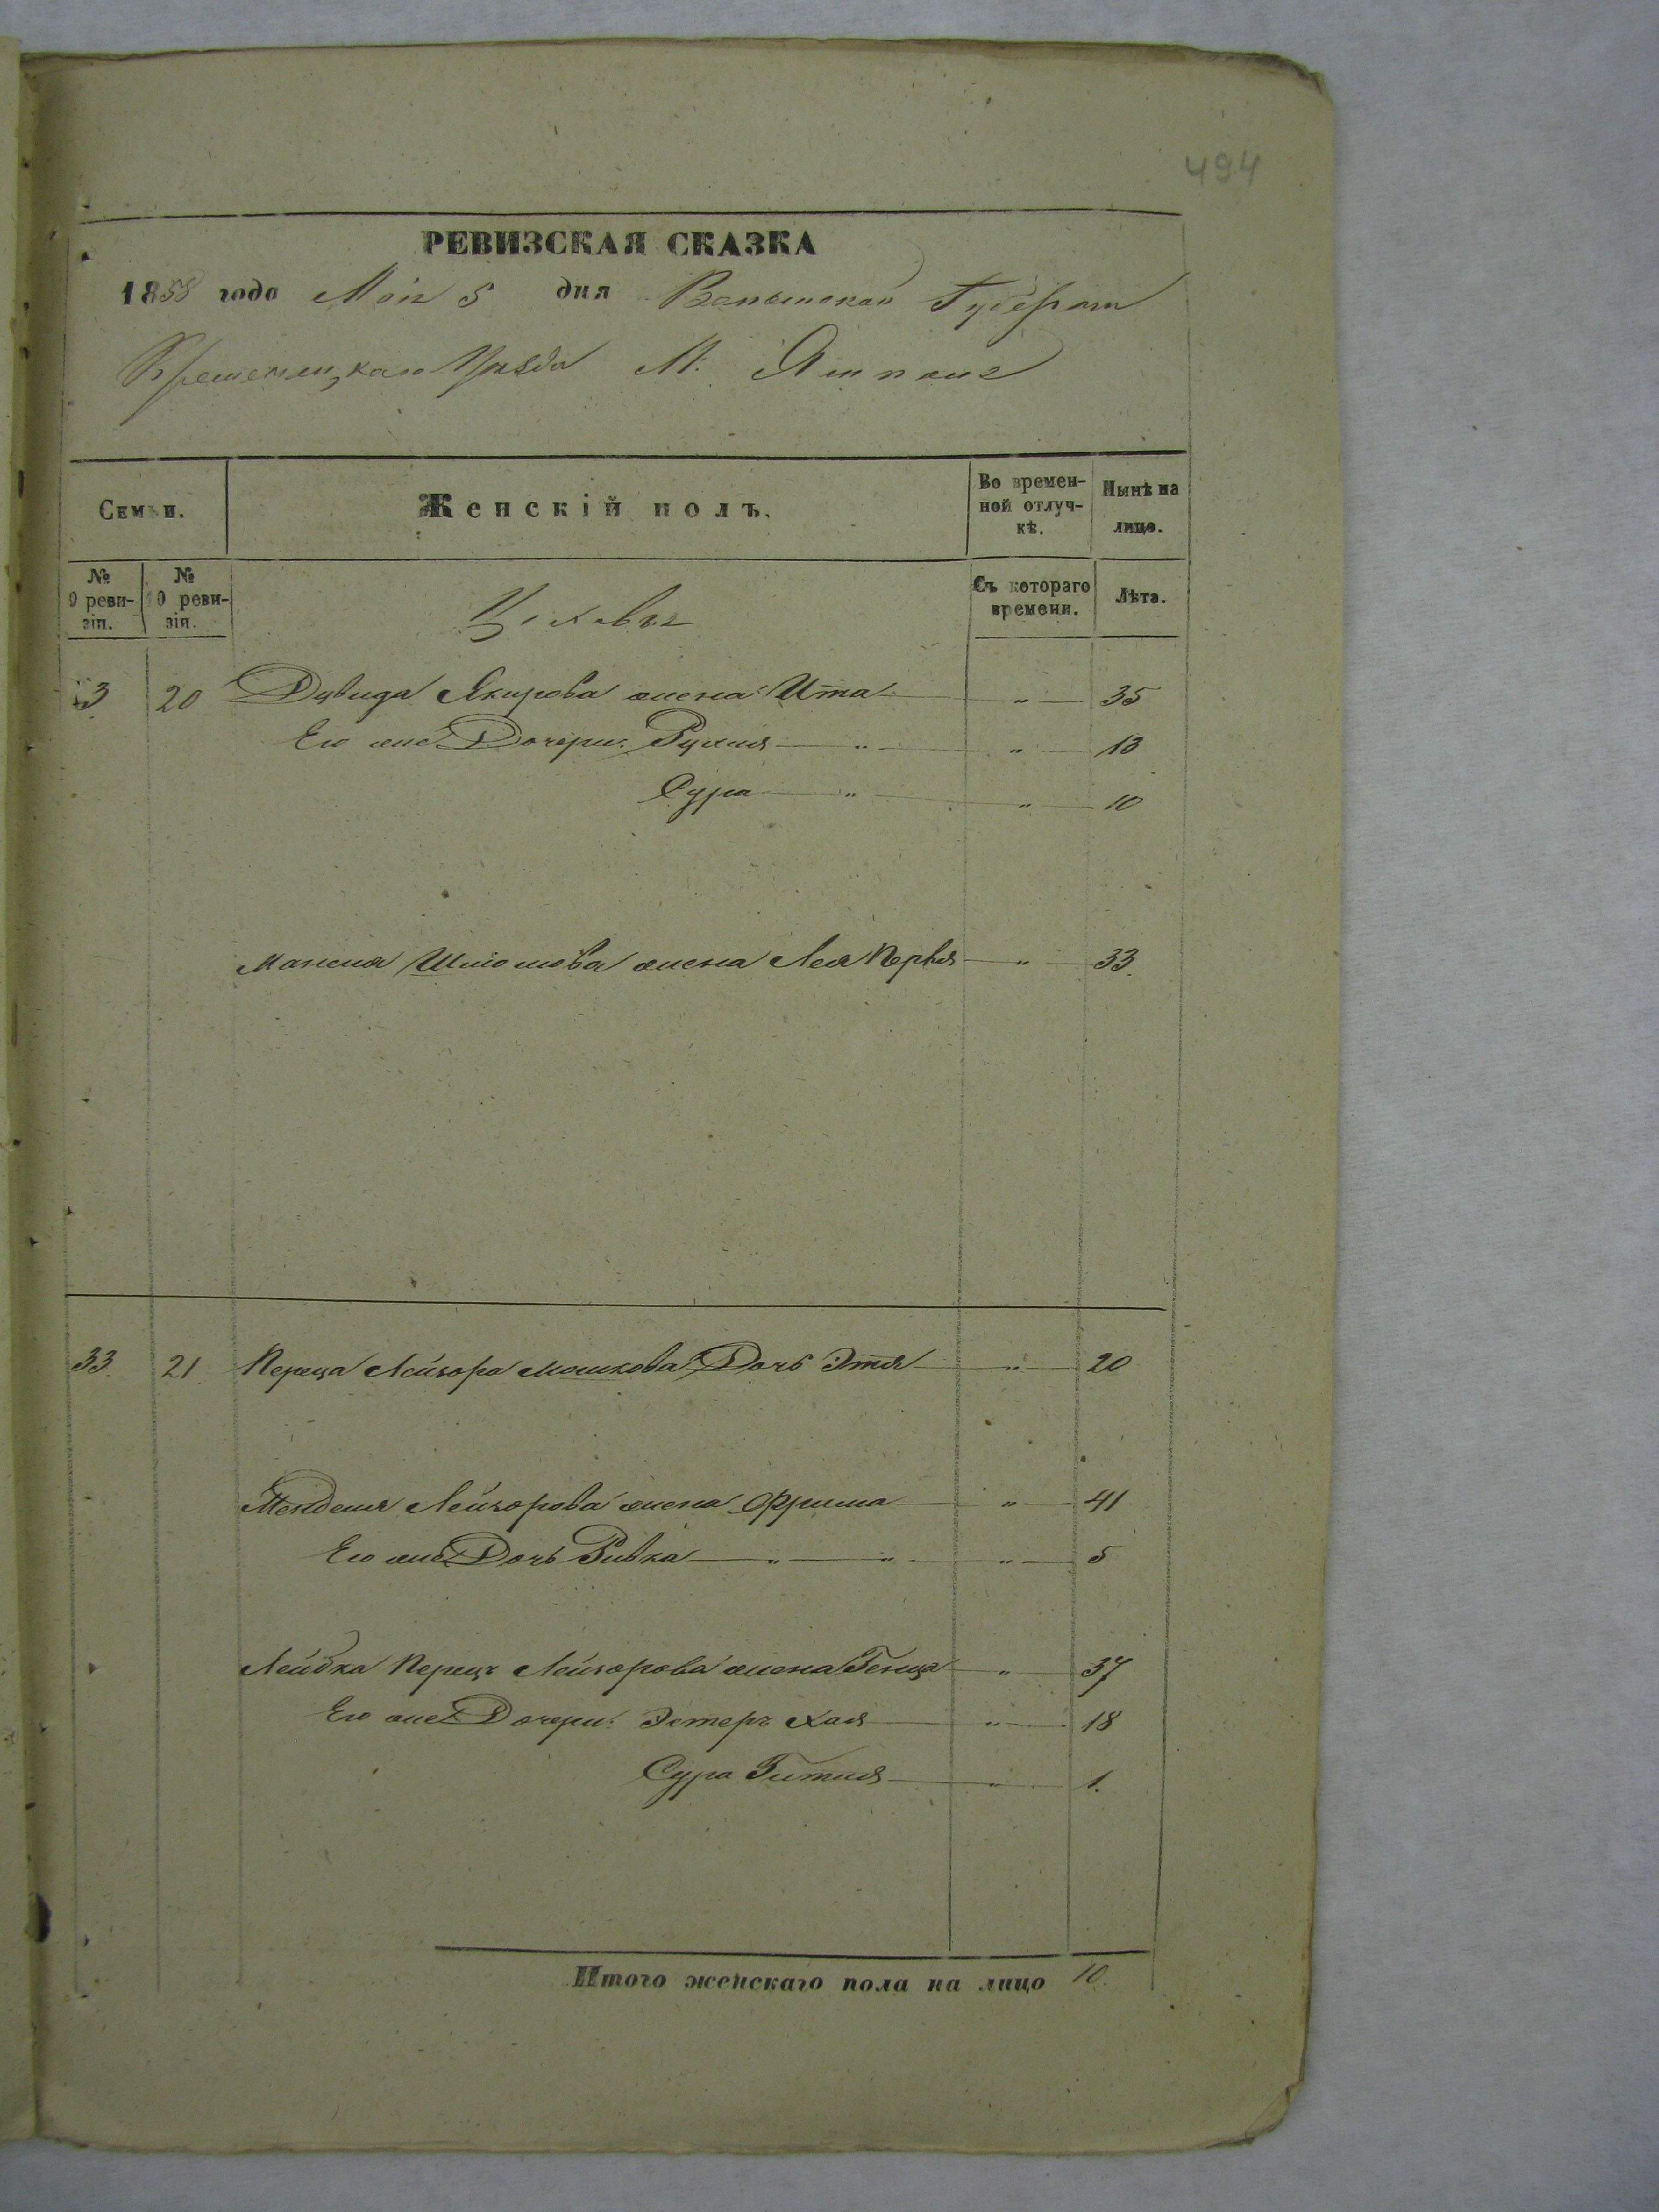 494
РЕВИЗСКАЯ СКАЗКА
1858 года Мая 5 дня Волынской Губернии
Кременецкаго Уѣзда М:
Семьи.
Женскій полъ.
Во времен-
ной отлуч-
кѣ.
Нынѣ на
лицо.
№
9 реви-
зіи.
№
10 реви-
зіи.
Съ котораго
времени.
Лѣта.
3 20 Дувида Якирова жена Ита " 35
Его же Дочери: Рухля " " 13
Сура " " 10
Шліомова жена Лея Перля " 33.
33. 21. Переца Лейзора Мошкова Дочь Этя " 20
Менделя Лейзорова жена Фрима " 41
Его же Дочь Ривка " " " 5
Лейбка Перецъ Лейзорова жена Генця " 37
Его же Дочери: Эстеръ Хая " 18
Сура Гитля " 1.
Итого женскаго пола на лицо 10.